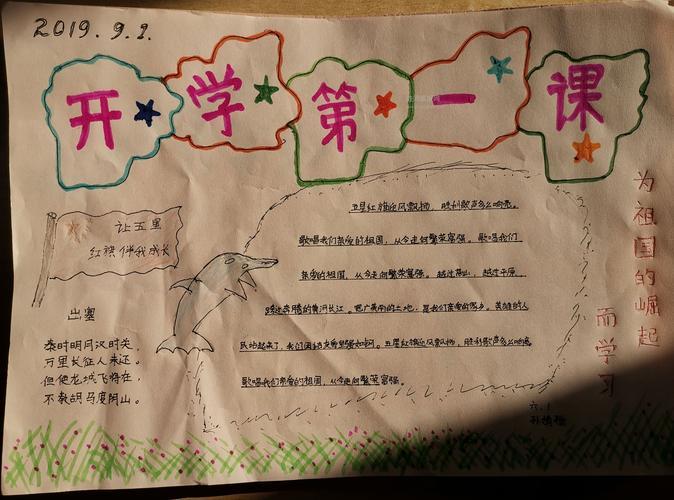 2019.9.2.
开学第一课
让五星
红旗伴我成长
出塞
秦时明月汉时关
万里长征人未还。
但使龙城飞将在,
不教胡马度阴山。
五星红旗迎风飘扬,胜利歌声多么响亮。
歌唱我们亲爱的祖国,从今走向繁荣富强。歌唱我们
亲爱的祖国,从今走向繁荣富强。越过高山,越过平原,
跨过奔腾的黄河长江。宽广美丽的土地,是我们亲爱的家乡。英雄的人
民站起来了,我们团结友爱坚强如钢。五星红旗迎风飘扬,胜利歌声多么响亮,
歌唱我们亲爱的祖国,从今走向繁荣富强。
为祖国的崛起
而学习
六.1